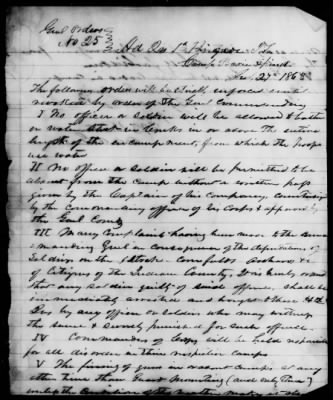 Genl Orders
No 25
Hd Qrs 1st Brigade
Camp
Jan. 27th 1863
The following orders will be strictly enforced until
revoked by order of the Genl Commanding
I No officer or Soldier will be allowed to bathe
or water Stock in tanks in or above the entire
length of the encampment, from which the troops
use water
II No officer or Soldier will be permitted to be
absent from the camp without a written pass
given by the Captain of his company, countersigned
by the Commanding officer of his Corps & approved by
the Genl Comdg
III Many complaints having been made to the Com-
manding Genl in consequence of the depredations of
Soldiers on the Stock Cornfields &c
of Citizens of the Indian Country, It is hereby ordered
that any soldier guilty of said offence, shall be
immediately arrested and brought to these Hd
Qrs by any officer or Soldier who may witness
the same & severely punished for such offence.
IV Commanders of Corps will be held responsible
for all disorder in their respective camps
V The firing of guns in or around camps at any
other time than Guard Mounting (and only then)